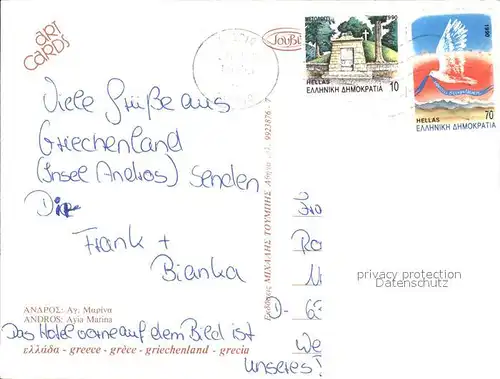 art
cards
Viele Grüße aus
Griechenland
(Insel Andros) senden
Dir
Frank +
Bianka
ΑΝΔΡΟΣ: Αγ. Μαρίνα
ANDROS: Ayia Marina
Das Hotel vorne auf dem Bild ist
unseres!
ελλάδα - greece - grèce - griechenland - grecia
ΜΙΧΑΛΗΣ ΤΟΥΜΠΗΣ
1990
HELLAS
ΕΛΛΗΝΙΚΗ ΔΗΜΟΚΡΑΤΙΑ
10
1990
HELLAS
70
ΕΛΛΗΝΙΚΗ ΔΗΜΟΚΡΑΤΙΑ
privacy protection
Datenschutz
D-
We